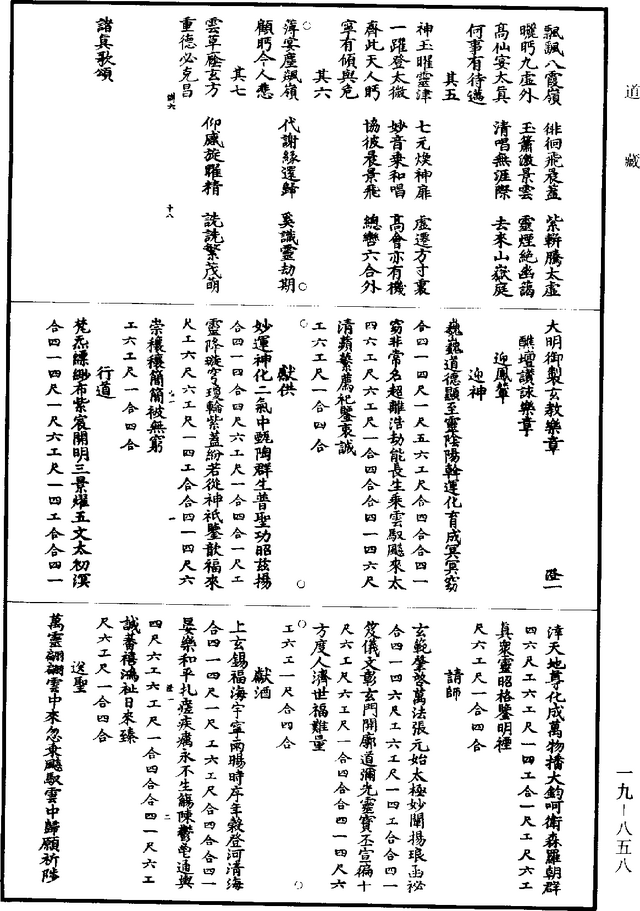 道藏
飄颻八霞嶺　徘徊飛晨蓋　紫軿騰太虛
曬眄九虛外　玉簫激景雲　靈煙絕幽藹
高仙宴太真　清唱無涯際　去來山嶽庭
何事有待邁
其五
神玉曜靈津　七元煥神扉　虛遷方寸裏
一躍登太微　妙音乘和唱　高會亦有機
齊此天人眄　協彼晨景飛　總轡六合外
寧有傾與危
其六
薄宴塵飆嶺　代謝緣還歸　奚識靈劫期
顧眄令人悲
其七
雲草廕玄方　仰感旋曜精　詵詵繁茂萌
重德必克昌
十八
諸真歌頌
大明御製玄教樂章　隆一
醮壇讚詠樂章
迎鳳輦
迎神
巍巍道德顯至靈陰陽斡運化育成冥冥窈
合四一四尺一五六工尺合四合四一
窈非常名超離浩劫能長生乘雲馭飈來太
四六工尺六工尺一合四合合四一四六尺
清蘋蘩薦祀鑒衷誠
工六工尺一合四合
獻供
妙運神化二氣中甄陶群生普聖功昭茲揚
合四一合四合四尺六工尺一合四合一尺工
靈降璇穹瓊輪紫蓋紛若從神祇鑒歆福來
尺工六尺六工尺一四工合合四一四尺六
崇穰穰簡簡被無窮
工六工尺一合四合
行道
梵炁縹緲布紫宸開明三景燿五文太初溟
合四一四尺一尺六工尺一四工合合四一
漳天地尊化成萬物播大鈞呵衛森羅朝群
四六尺六工尺一四工合一尺工尺六工
真衆靈昭格鑒明禋
尺六工尺一合四合
請師
玄範肇啓萬法張元始太極妙闡揚琅函祕
合四一四六尺工六工尺一四工合合四一
笈儀文彰玄門開廓道彌光靈寶丕宣徧十
尺六工尺六工尺一合四合合四一四尺六
方度人濟世福難量
工六工一尺合四合
獻酒
上玄錫福海宇寧雨暘時序年穀登河清海
合四一四尺一尺工六工尺合四合合四一
晏樂和平扎瘥疾癘永不生觴陳鬱鬯通輿
四尺六工六工尺一合四合合四一尺六工
誠蕃禧鴻祉日來臻
尺六工尺一合四合
送聖
萬靈翩翩雲中來忽乘飈馭雲中歸願祈陟
一九－八五八